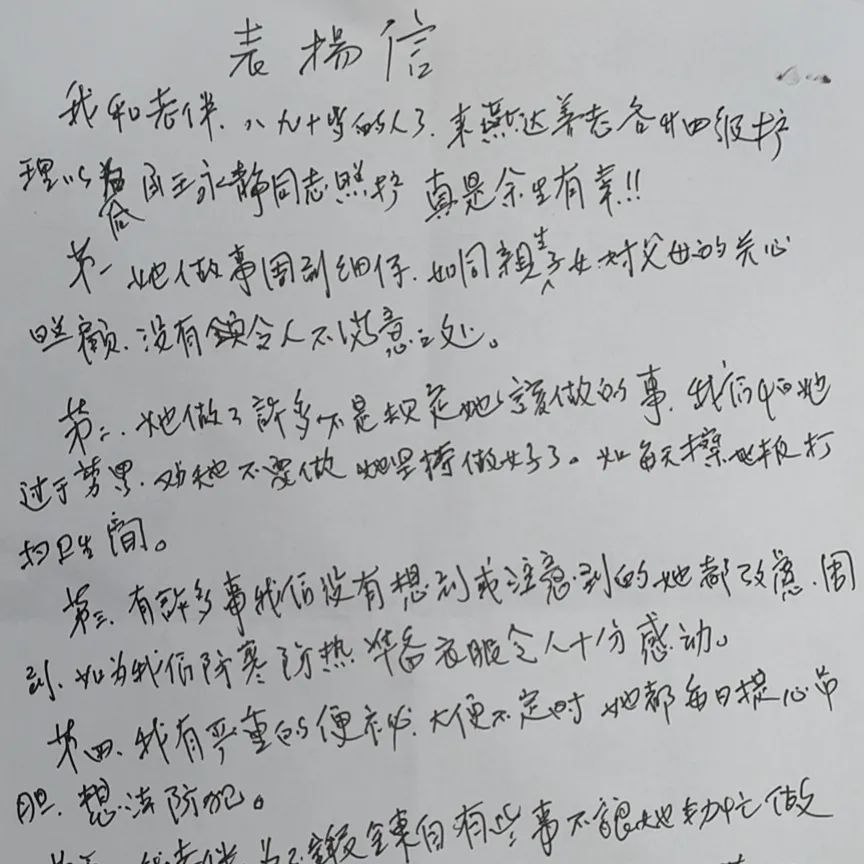 表揚信
我和老伴，八九十岁的人了，来燕达养老各廾四级护
理以后 由王永静同志照护 真是余生有幸!!
第一 她做事周到细仔，如同親生子女对父母的关心
照顧，没有令人不滿意之处。
第二、她做了許多不是规定她該做的事，我们怕她
过于劳累，劝她不要做 她坚持做好了。如每天擦地板打
扫卫生間。
第三、有許多事我们没有想到或注意到的她都改意，周
到，如为我们防寒防热 准备衣服令人十分感动。
第四、我有严重的便秘，大便不定时 她都每日提心吊
胆，想法防犯。
我老伴 鍛鍊自 有些事不讓她帮忙做